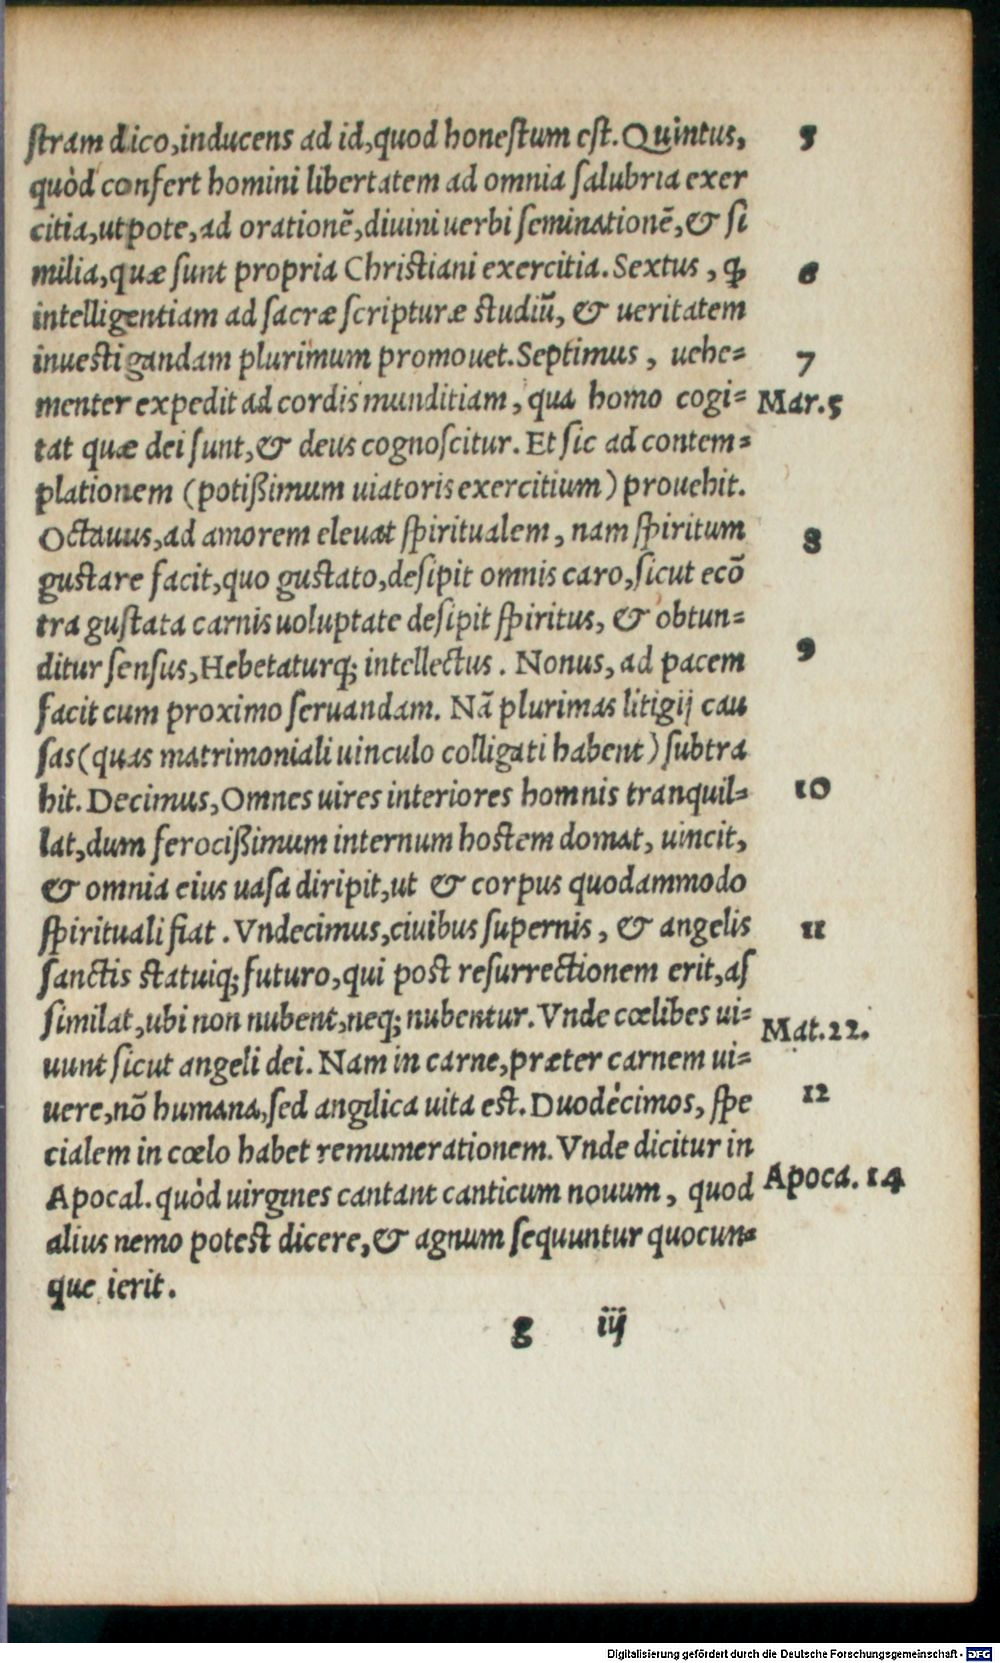 ſtram dico,inducens ad id,quod honeſtum eſt. Quintus, 5
quòd confert homini libertatem ad omnia ſalubria exer
citia,utpote,ad orationē,diuini uerbi ſeminationē,& ſi
milia,quæ ſunt propria Chriſtiani exercitia. Sextus, ꝙ 6
intelligentiam ad ſacræ ſcripturæ ſtudiū, & ueritatem
inueſtigandam plurimum promouet. Septimus, uehe= 7
menter expedit ad cordis munditiam, qua homo cogi= Mar.5
tat quæ dei ſunt,& deus cognoſcitur. Et ſic ad contem=
plationem (potiſſimum uiatoris exercitium) prouehit.
Octauus,ad amorem eleuat ſpiritualem, nam ſpiritum 8
guſtare facit,quo guſtato,deſipit omnis caro,ſicut ecō
tra guſtata carnis uoluptate deſipit ſpiritus, & obtun=
ditur ſenſus,Hebetaturq; intellectus. Nonus, ad pacem 9
facit cum proximo ſeruandam. Nā plurimas litigij cau
ſas(quas matrimoniali uinculo colligati habent) ſubtra
hit. Decimus,Omnes uires interiores homnis tranquil= 10
lat,dum ferociſſimum internum hoſtem domat, uincit,
& omnia eius uaſa diripit,ut & corpus quodammodo
ſpirituali fiat. Vndecimus,ciuibus ſupernis, & angelis 11
ſanctis ſtatuiq; futuro,qui poſt reſurrectionem erit,aſ
ſimilat,ubi non nubent,neq; nubentur. Vnde cœlibes ui= Mat.22.
uunt ſicut angeli dei. Nam in carne,præter carnem ui=
uere,nō humana,ſed angelica uita eſt. Duodècimos, ſpe 12
cialem in cœlo habet remumerationem. Vnde dicitur in
Apocal. quòd uirgines cantant canticum nouum, quod Apoca. 14
alius nemo poteſt dicere,& agnum ſequuntur quocun=
que ierit.
g iij
Digitalisierung gefördert durch die Deutsche Forschungsgemeinschaft - DFG